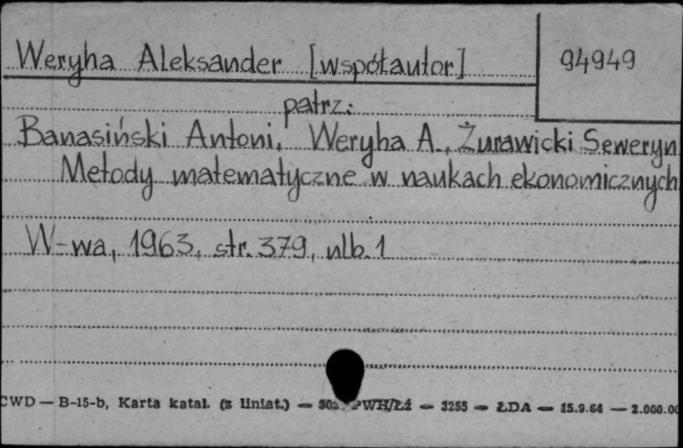 Weryha Aleksander [współautor]
94949
patrz:
Banasiński Antoni, Weryha A., Żurawicki Seweryn
Metody matematyczne w naukach ekonomicznych
W-wa, 1963, str. 379, nlb. 1
CWD — B-15-b, Karta katal. (z liniat.) — PWH/Łź — 3255 — ŁDA — 15.9.64 — 2.000.00